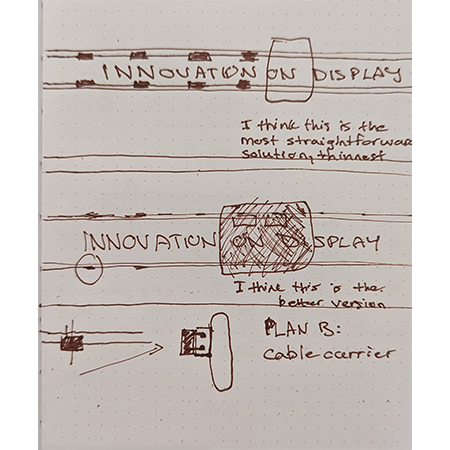 INNOVATION ON DISPLAY
I think this is the
most straightforward
solution, thinnest
INNOVATION ON DISPLAY
I think this is the
better version
PLAN B:
cable carrier